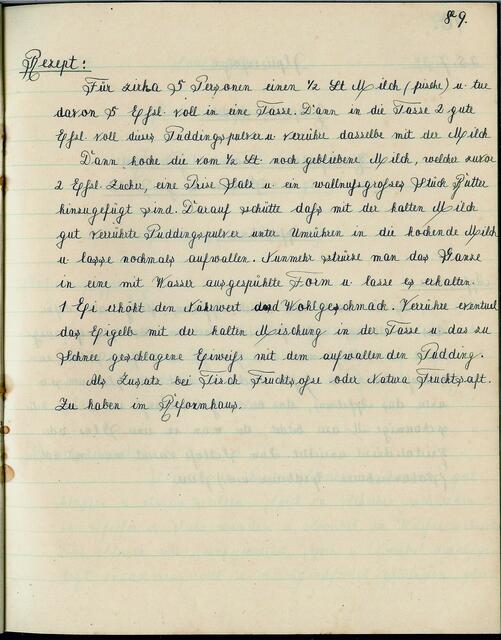 89.
Rezept:
Für zirka 5 Personen einen 1/2 Lt Milch (frische) u. tue
davon 5 Eßl. voll in eine Tasse. Dann in die Tasse 2 gute
Eßl. voll dieses Puddingspulver u verrühre dasselbe mit der Milch
Dann koche die vom 1/2 Lt. noch gebliebene Milch, welcher zuvor
2 Eßl. Zucker, eine Prise Salz u. ein wallnußgroßes Stück Butter
hinzugefügt sind. Darauf schütte daß mit der kalten Milch
gut verrührte Puddingspulver unter Umrühren in die kochende Milch
u lasse nochmals aufwallen. Nunmehr stürze man das Ganze
in eine mit Wasser ausgespühlte Form u lasse es erkalten.
1 Ei erhöht den Nährwert und Wohlgeschmach. Verrühre eventuel
das Eigelb mit der kalten Mischung in der Tasse u das zu
Schnee geschlagene Eiweiß mit dem aufwallenden Pudding.
Als Zusatz bei Tisch Fruchtsoße oder Natura Fruchtsaft.
Zu haben im Reformhaus.